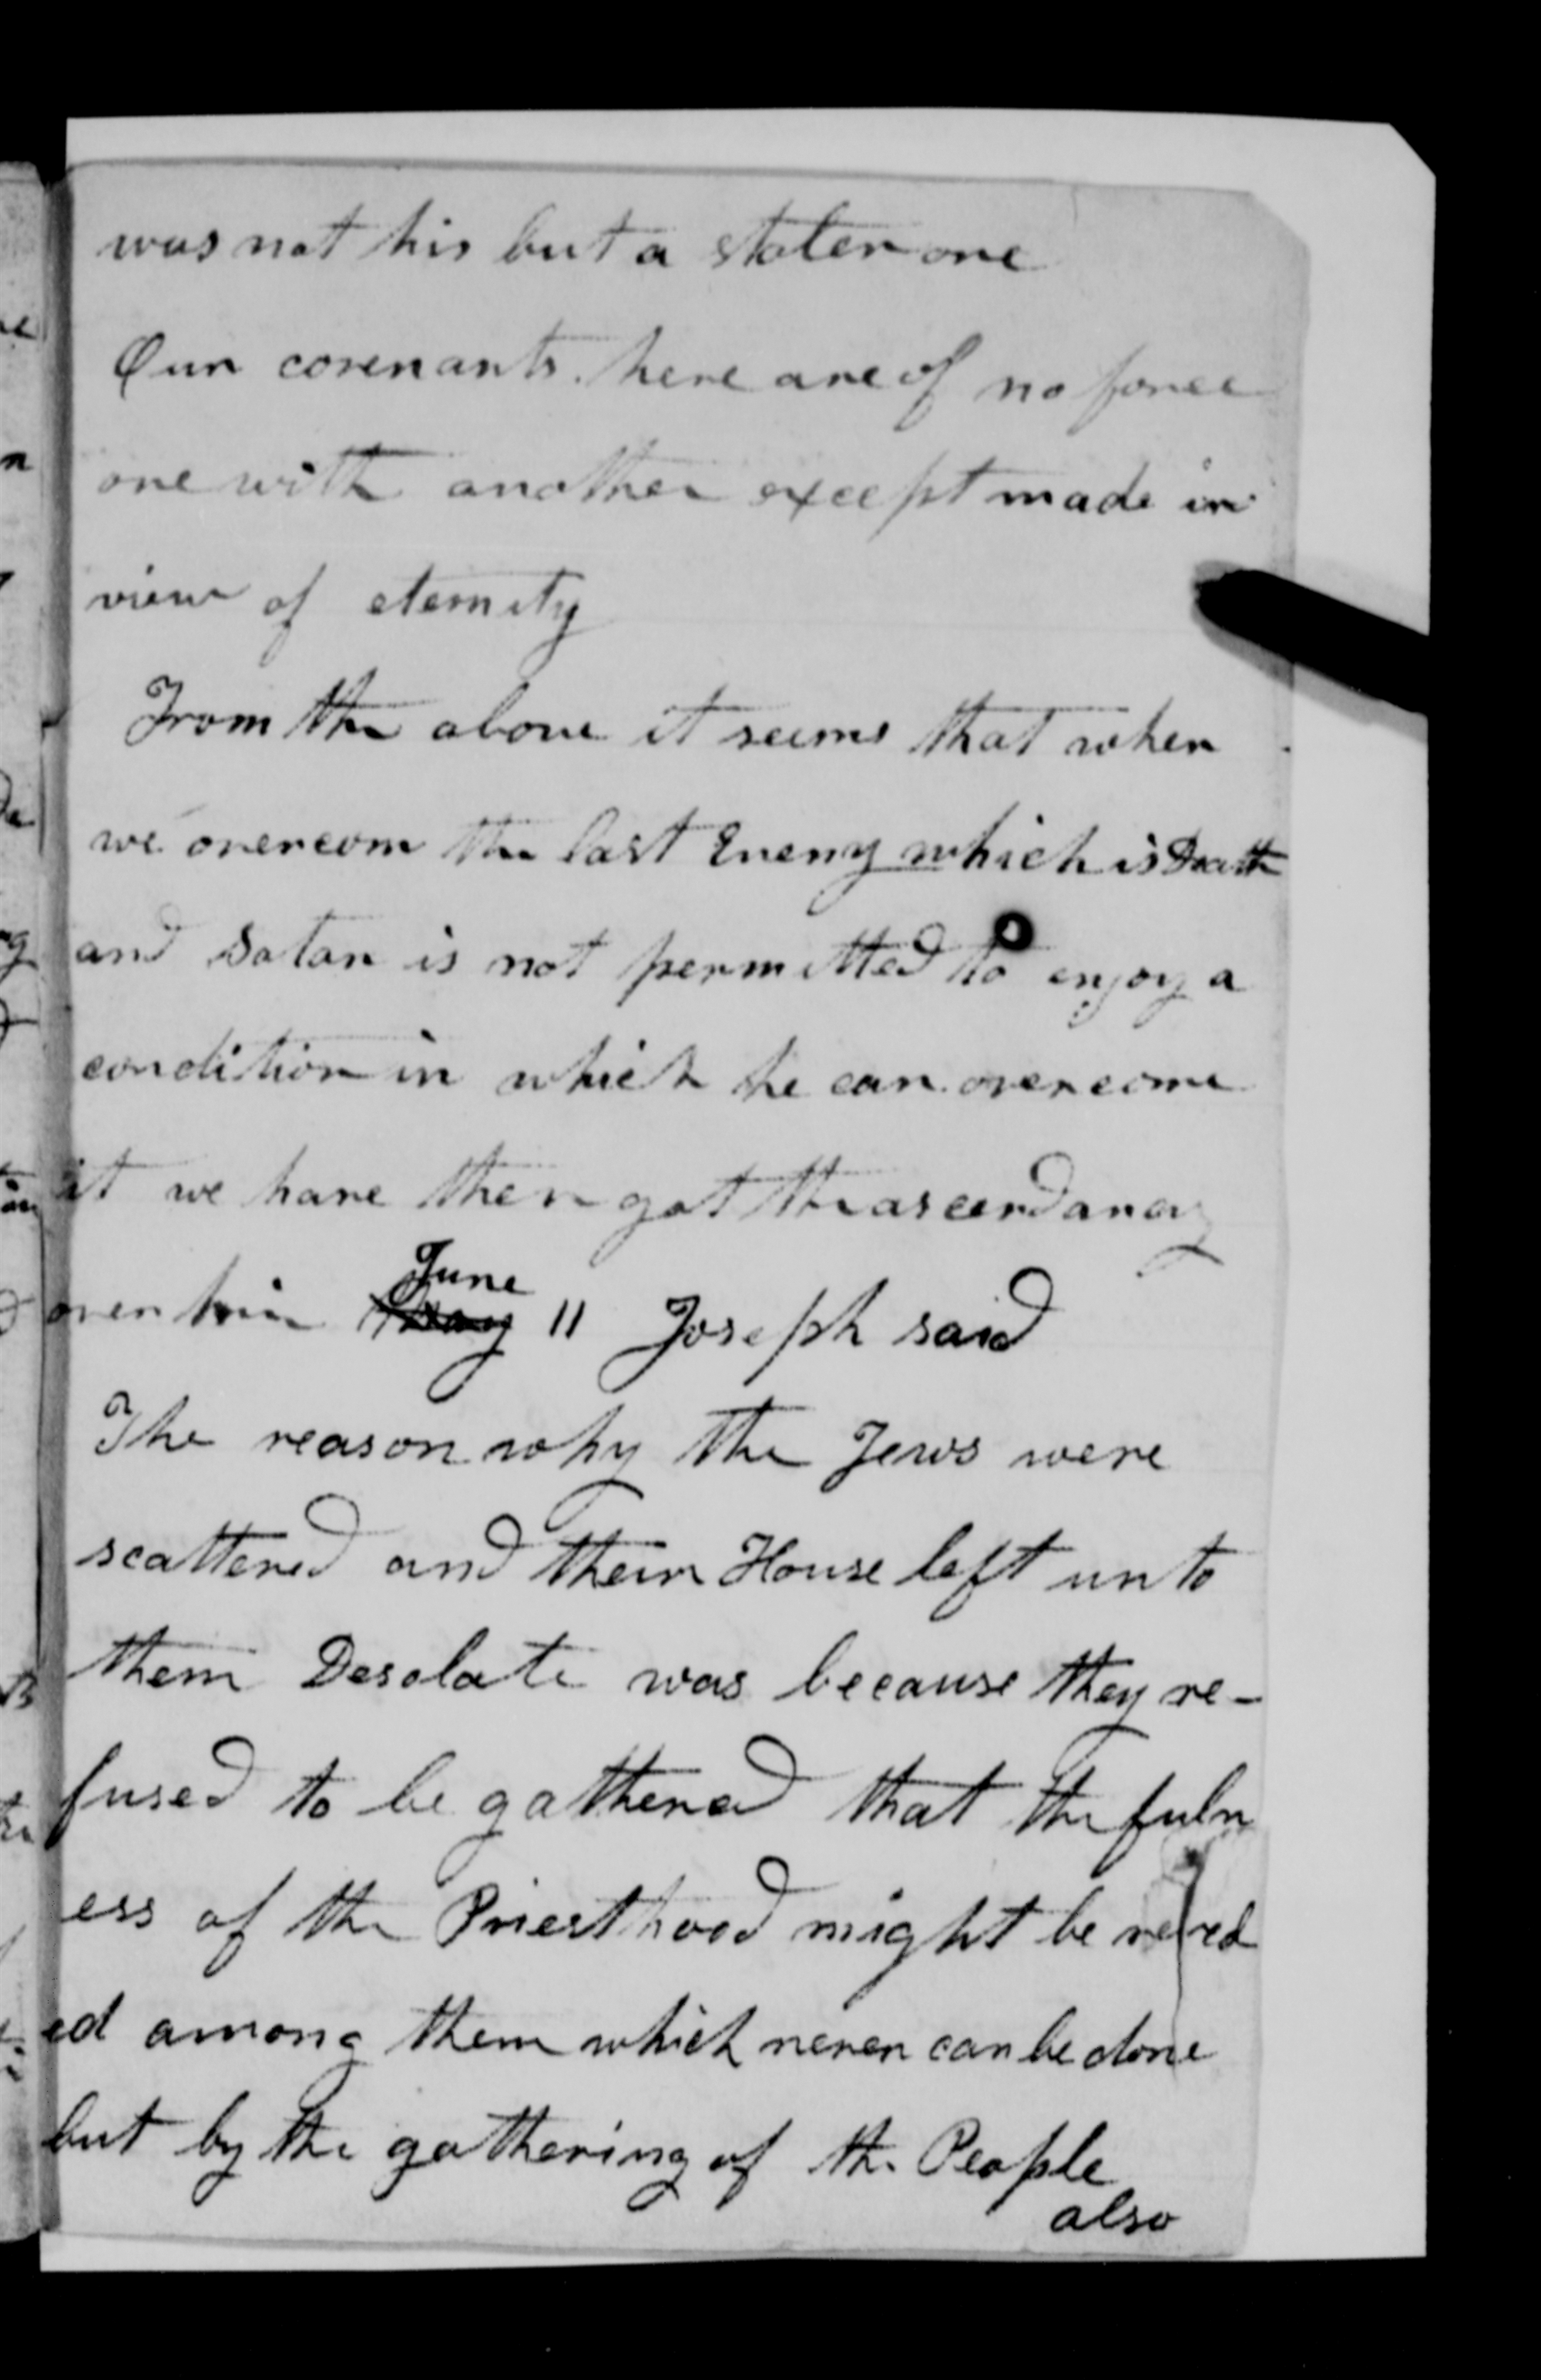 was not his but a stolen one
Our covenants here are of no force
one with another except made in
view of eternity
From the above it seems that when
we overcom the last Enemy which is Death
and Satan is not permitted to enjoy a
condition in which he can overcome
it we have then got the ascendancy
over him May June 11 Joseph said
The reason why the Jews were
scattered and their House left unto
them Desolate was because they re-
fused to be gathered that the fuln
ess of the Priesthood might be
ed among them which never can be done
but by the gathering of the People
also